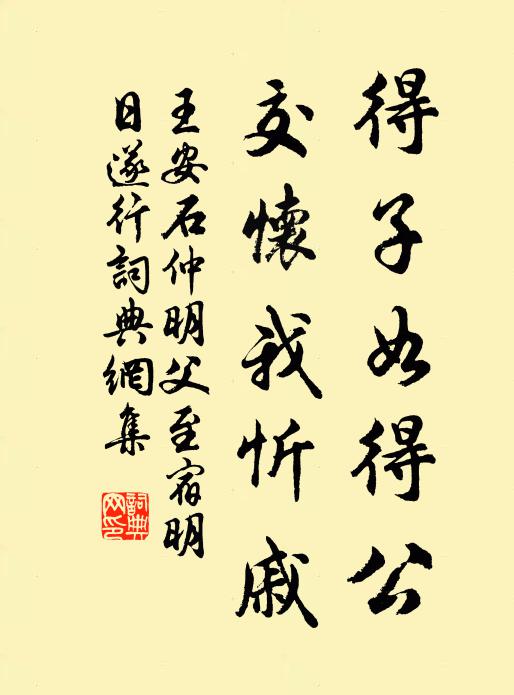 得子如得公
交懷我忻戚
王安石仲明父至宿明
日遂行詞典網集
詞典
网印